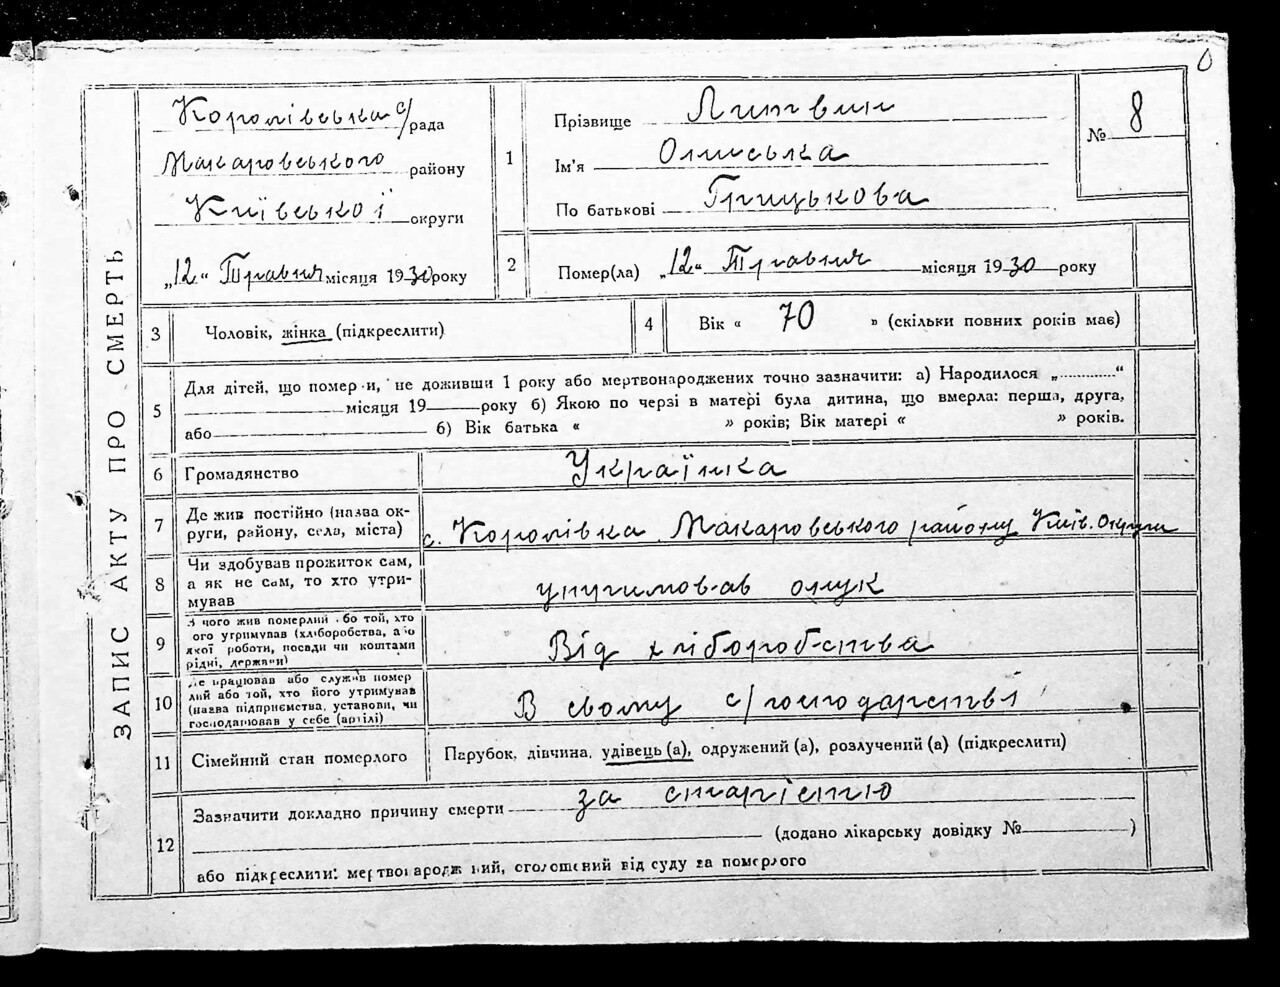 О
ЗАПИС АКТУ ПРО СМЕРТЬ
Королівська с/рада
Макаровського району
Київської округи
„12“ Травня місяця 1930 року
1
Прізвище Литвин
Ім'я Олиська
По батькові Грицькова
№ 8
2
Помер(ла) „12“ Травня місяця 1930 року
3
Чоловік, жінка (підкреслити)
4
Вік « 70 » (скільки повних років має)
5
Для дітей, що помер и, не доживши 1 року або мертвонароджених точно зазначити: а) Народилося „ “
місяця 19 року б) Якою по черзі в матері була дитина, що вмерла: перша, друга,
або б) Вік батька « » років; Вік матері « » років.
6
Громадянство
Українка
7
Де жив постійно (назва ок-
руги, району, села, міста)
с. Королівка Макаровського району Київ. Округи
8
Чи здобував прожиток сам,
а як не сам, то хто утри-
мував
онук
9
З чого жив померлий або той, хто
ого утримував (хліборобства, або
якої роботи, посади чи коштами
рідні, держави)
Від хліборобства
10
Де працював або служив помер
лий або той, хто його утримував
(назва підприємства, установи, чи
господарював у себе (артілі)
В свому с/господарстві
11
Сімейний стан померлого
Парубок, дівчина, удівець(а), одружений(а), розлучений(а) (підкреслити)
12
Зазначити докладно причину смерти за старістю
(додано лікарську довідку № )
або підкреслити: мертвонароджений, оголошений від суду за померлого